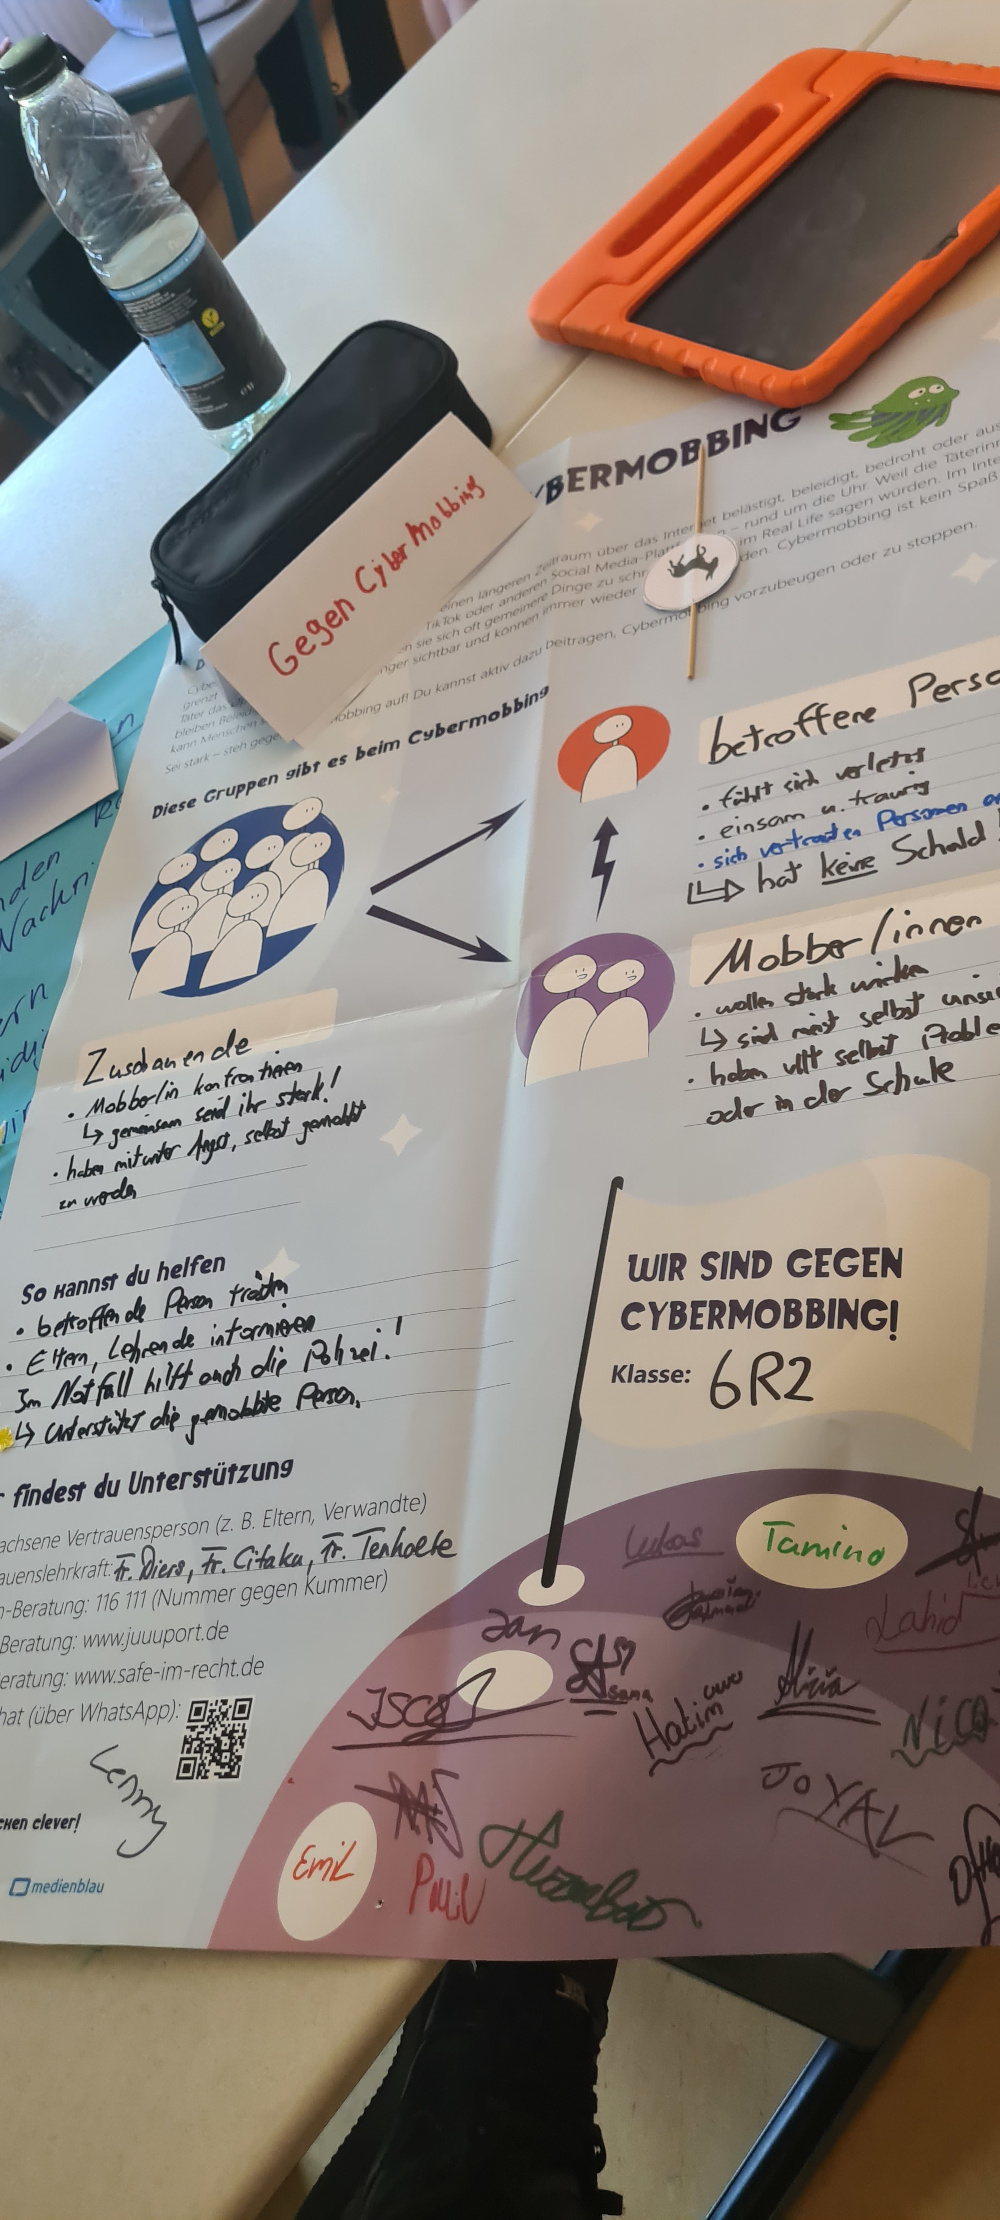 Gegen Cyber Mobbing
YBERMOBBING
einen längeren Zeitraum über das Internet belästigt, beleidigt, bedroht oder aus
TikTok oder anderen Social Media-Plat – rund um die Uhr. Weil die Täterin
n sie sich oft gemeinere Dinge zu sch im Real Life sagen würden. Im Inte
nger sichtbar und können immer wieder den. Cybermobbing ist kein Spaß
Cybe
grenzt
Täter das
bleiben Beleid
kann Menschen
Sei stark – steh gege obbing auf! Du kannst aktiv dazu beitragen, Cybermobbing vorzubeugen oder zu stoppen.
Diese Gruppen gibt es beim Cybermobbing
betroffene Perso
• fühlt sich verletzt
• einsam u. traurig
• sich vertrauten Personen an
↳ hat keine Schuld!
Mobber/innen
• wollen stark wirken
↳ sind meist selbst unsi
• haben vllt selbst Proble
oder in der Schule
Zuschauende
• Mobber/in konfrontieren
↳ gemeinsam seid ihr stark!
• haben mitunter Angst, selbst gemobbt
zu werden
So kannst du helfen
• betroffende Person trösten
• Eltern, Lehrende informieren
Im Notfall hilft auch die Polizei!
↳ Unterstützt die gemobbte Person.
WIR SIND GEGEN
CYBERMOBBING!
Klasse: 6R2
r findest du Unterstützung
achsene Vertrauensperson (z. B. Eltern, Verwandte)
auenslehrkraft: Fr. Diers, Fr. Citaku, Fr. Tenhoete
n-Beratung: 116 111 (Nummer gegen Kummer)
Beratung: www.juuuport.de
eratung: www.safe-im-recht.de
hat (über WhatsApp):
Lenny
chen clever!
medienblau
Lukas
Tamino
Jan
Lahid
Hakim
Alicia
Nico
JOYAL
Emil
nden
Nachri
ern